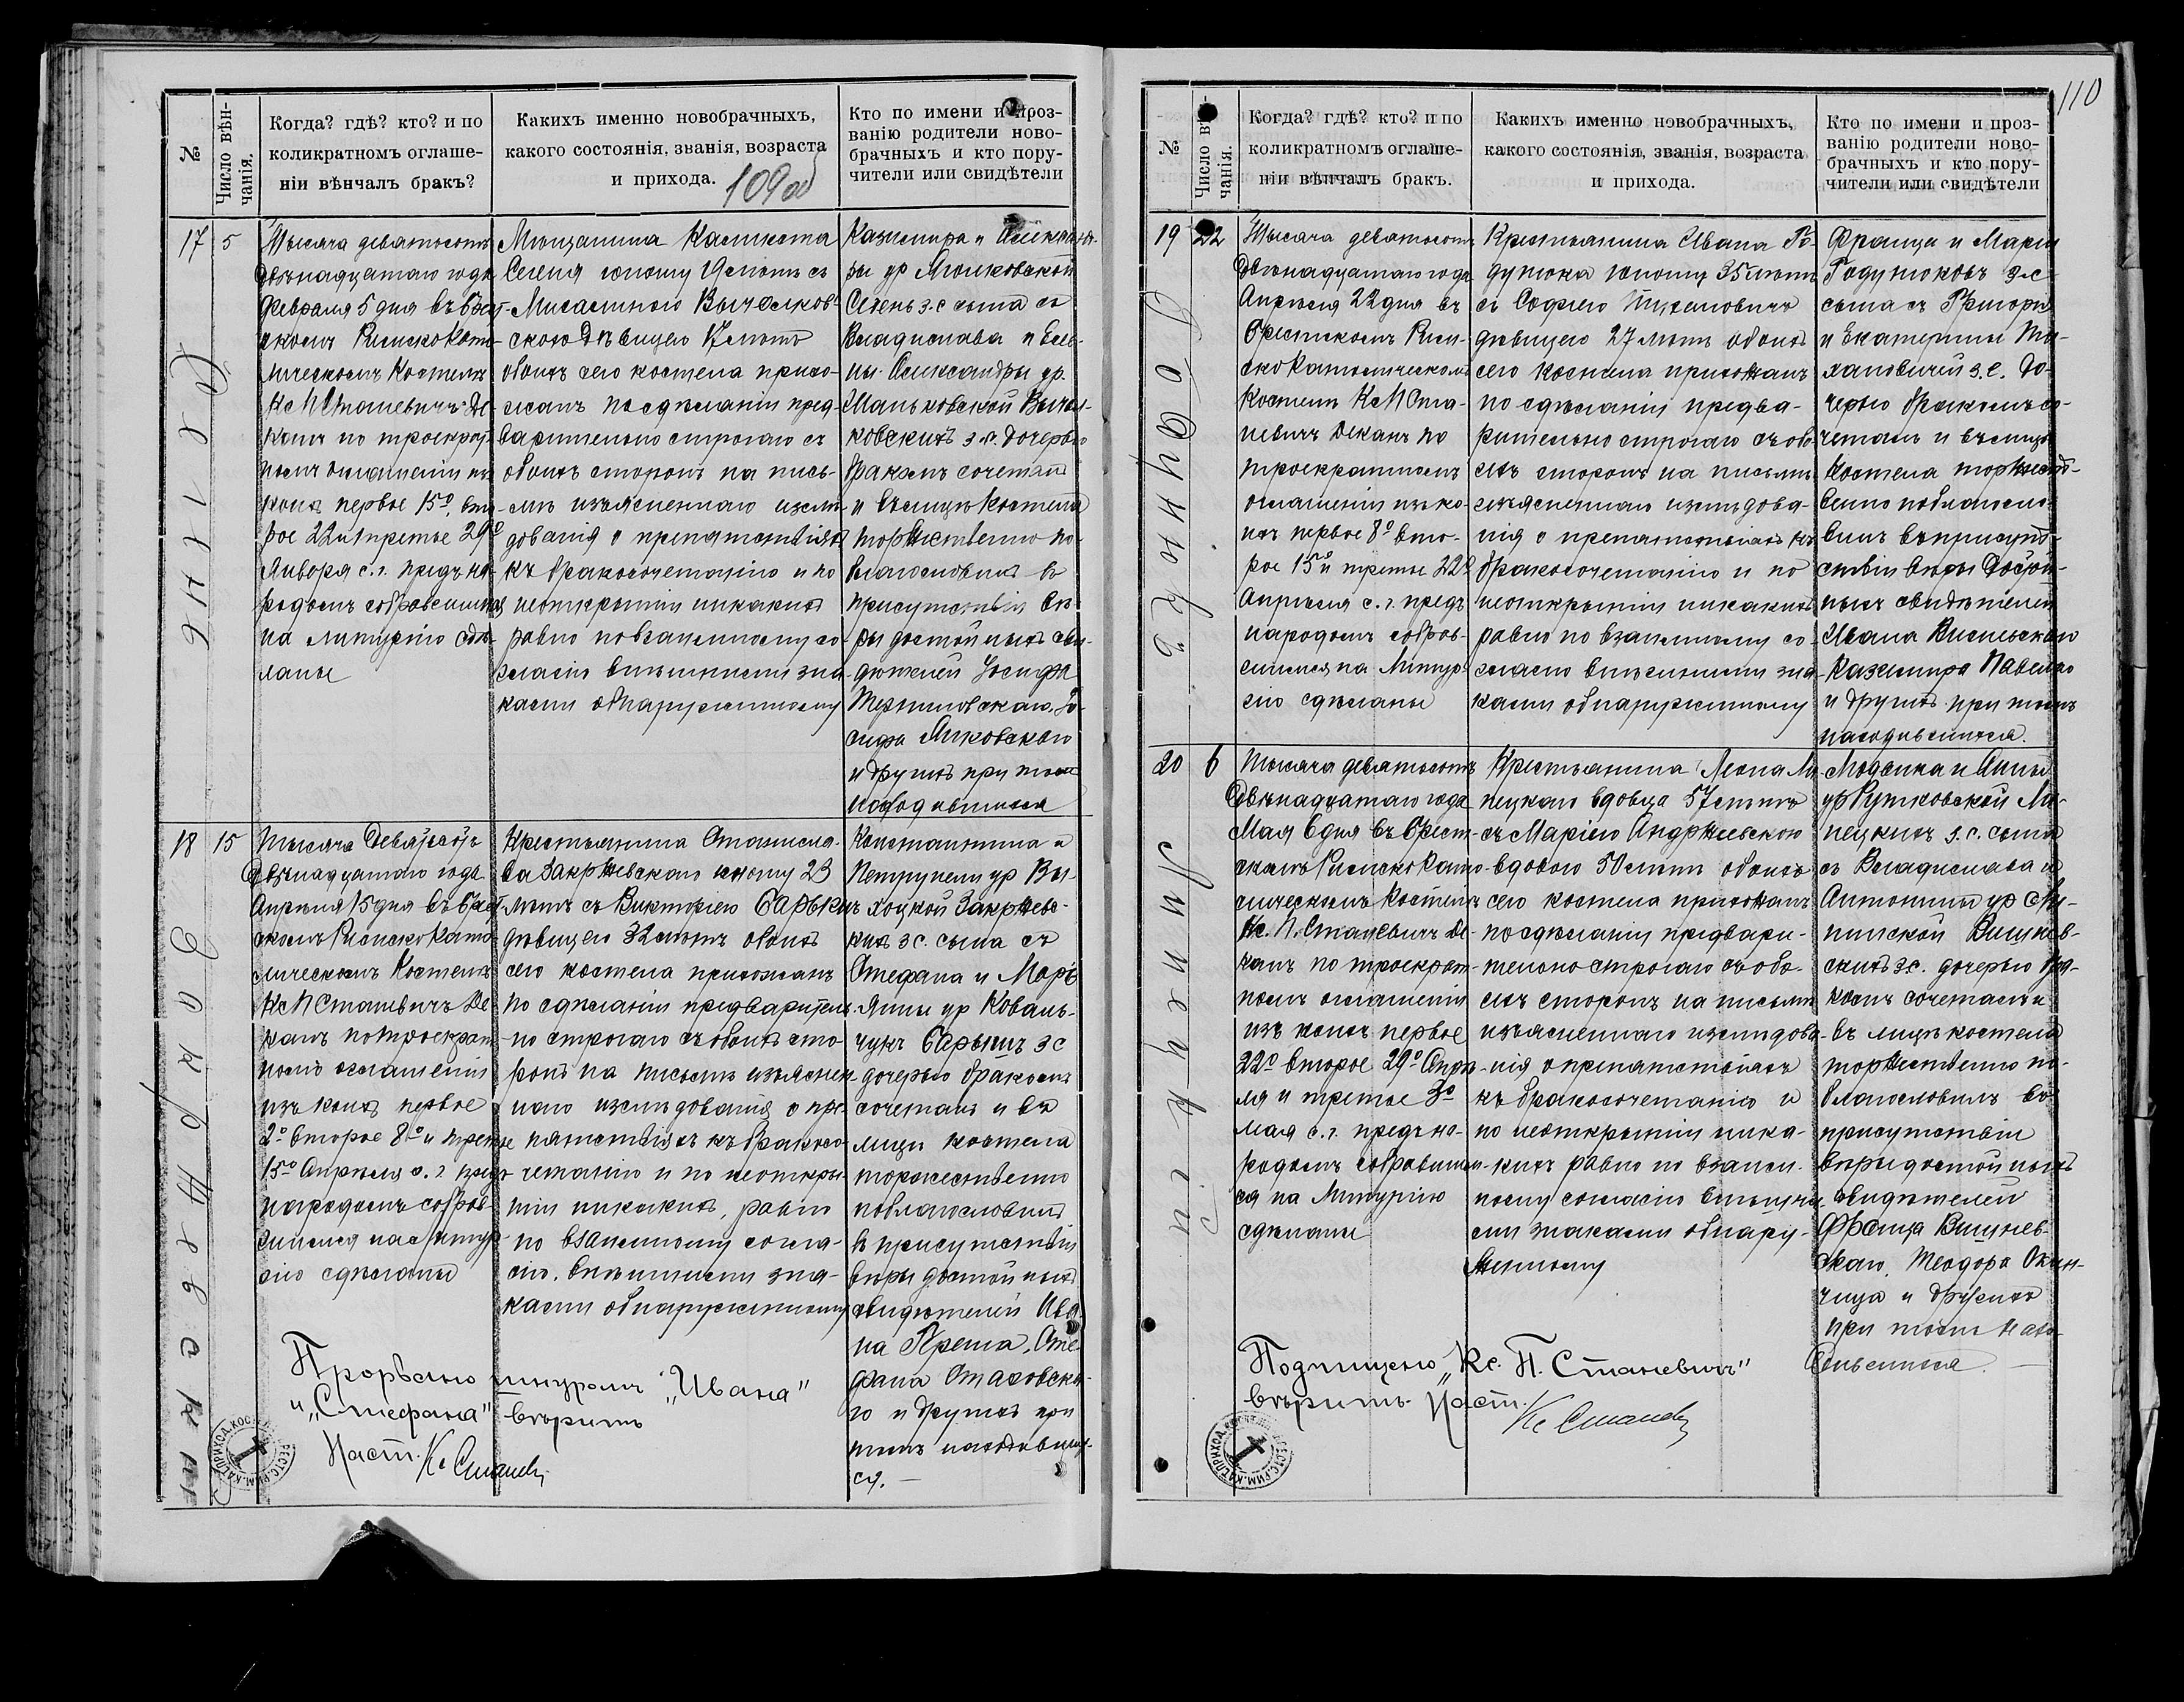 №
Число вѣн-
чанія.
Когда? гдѣ? кто? и по
коликратномъ оглаше-
ніи вѣнчалъ бракъ?
Какихъ именно новобрачныхъ,
какого состоянія, званія, возраста
и прихода.
109 об
Кто по имени и проз-
ванію родители ново-
брачныхъ и кто пору-
чители или свидѣтели
17
5
Тысяча девятьсотъ
двѣнадцатаго года
Февраля 5 дня въ Брест-
скомъ Римско Като-
лическомъ Костелѣ
Кс П Станевичъ Де-
канъ по троекрат-
номъ оглашеніи изъ
коихъ первое 15º, вто-
рое 22 и третье 29º
Января с. г. предъ на-
родомъ собравшимся
на литургію сдѣ-
ланы
Мѣщанина Каликста
Селеня юношу 19 лѣтъ съ
Михалиною Вычолков-
скою Дѣвицею 17 лѣтъ
обоихъ сего костела прихо-
жанъ по сдѣланіи пред-
варительно строгаго съ
обоихъ сторонъ на пись-
мѣ изъясненнаго изслѣ-
дованія о препятствіяхъ
къ бракосочетанію и по
неоткрытіи никакихъ
равно по взаимному со-
гласію внѣшними зна-
ками обнаруженному
Казимира и Александ-
ры ур
Селень з. с сына съ
Владислава и Еле-
ны Александры ур.
Маньковской Вычол-
ковскихъ з. с. дочерью
бракомъ сочеталъ
и въ лицѣ костела
торжественно по-
благословилъ въ
присутствіи вѣ-
ры достойныхъ сви-
дѣтелей Іосифа
Іо-
сифа
и другихъ при томъ
находившихся
18
15
Тысяча Девятьсотъ
двѣнадцатаго года
Апрѣля 15 дня въ Брест-
скомъ Римско Като-
лическомъ Костелѣ
Кс П Станевичъ Де
канъ по троекрат-
номъ оглашеніи
изъ коихъ первое
2º второе 8º и третье
15º Апрѣля с. г. предъ
народомъ собрав-
шимся на литур-
гію сдѣланы
Крестьянина Станисла-
ва Закржевскаго юношу 23
лѣтъ съ Викторіею Сарычъ
дѣвицею 32 лѣтъ обоихъ
сего костела прихожанъ
по сдѣланіи предваритель-
но строгаго съ обоихъ сто-
ронъ на письмѣ изъяснен-
наго изслѣдованія о пре-
пятствіяхъ къ бракосо-
четанію и по неоткры-
тіи никакихъ, равно
по взаимному согла-
сію внѣшними зна-
ками обнаруженному
Константина и
Петрунели ур Вы-
Закржевс-
кихъ з с. сына съ
Стефана и Марь-
янны ур Коваль-
чукъ з с
дочерью бракомъ
сочеталъ и въ
лицѣ костела
торжественно
поблагословилъ
въ присутствіи
вѣры достойныхъ
свидѣтелей Ива-
на Сте-
фана Стаховска-
го и другихъ при
томъ находивших-
ся. —
Прорвано шнуромъ „Ивана"
и „Стефана" вѣрить
Наст. Кс Станев
110
№
Число вѣн-
чанія.
Когда? гдѣ? кто? и по
коликратномъ оглаше-
ніи вѣнчалъ бракъ.
Какихъ именно новобрачныхъ,
какого состоянія, званія, возраста
и прихода.
Кто по имени и проз-
ванію родители ново-
брачныхъ и кто пору-
чители или свидѣтели
19
22
Годунюкъ
Тысяча девятьсотъ
Двѣнадцатаго года
Апрѣля 22 дня въ
Брестскомъ Рим-
ско Католическомъ
Костелѣ Кс П Ста-
невичъ Деканъ по
троекратномъ
оглашеніи изъ ко-
ихъ первое 8º вто-
рое 15º и третье 22º
Апрѣля с. г. предъ
народомъ собрав-
шимся на Литур-
гію сдѣланы
Крестьянина Ивана Го-
дунюка юношу 35 лѣтъ
съ Софіею Тихановичъ
дѣвицею 27 лѣтъ обоихъ
сего костела прихожанъ
по сдѣланіи предва-
рительно строгаго съ обо-
ихъ сторонъ на письмѣ
изъясненнаго изслѣдова-
нія о препятствіяхъ къ
бракосочетанію и по
неоткрытіи никакихъ
равно по взаимному со-
гласію внѣшними зна-
ками обнаруженному
Франца и Маріи
Годунюковъ з с
сына съ Григорія
и Екатерины Ти-
хановичей з. с. до-
черью бракомъ со-
четалъ и въ лицѣ
костела торжест-
венно поблагосло-
вилъ въ присут-
ствіи вѣры Достой-
ныхъ свидѣтелей
Ивана
Казимира
и другихъ при томъ
находившихся.
20
6
Липецкій
Тысяча девятьсотъ
Двѣнадцатаго года
Мая 6 дня въ Брест-
скомъ Римско Като-
лическомъ Костелѣ
Кс. П. Станевичъ Де-
канъ по троекрат-
номъ оглашеніи
изъ коихъ первое
22º второе 29º Апрѣ-
ля и третье 3º
Мая с. г. предъ на-
родомъ собравшим-
ся на Литургію
сдѣланы
Крестьянина Леона Ли-
пецкаго вдовца 57 лѣтъ
съ Маріею Андржеевскою
вдовою 50 лѣтъ обоихъ
сего костела прихожанъ
по сдѣланіи предвари-
тельно строгаго съ обо-
ихъ сторонъ на письмѣ
изъясненнаго изслѣдова-
нія о препятствіяхъ
къ бракосочетанію и
по неоткрытіи ника-
кихъ равно по взаим-
ному согласію внѣшни-
ми знаками обнару-
женному
и Анны
ур Рутковской Ли-
пецкихъ з. с. сына
съ Владислава и
Антонины ур
Вишнев-
скихъ з с. дочерью бра-
комъ сочеталъ и
въ лицѣ костела
торжественно по-
благословилъ въ
присутствіи
вѣры достойныхъ
свидѣтелей
Франца Вишнев-
скаго, Теодора
и другихъ
при томъ нахо-
дившихся. —
Подпищено „Кс. П. Станевичъ"
вѣрить. Наст.
Кс Станев